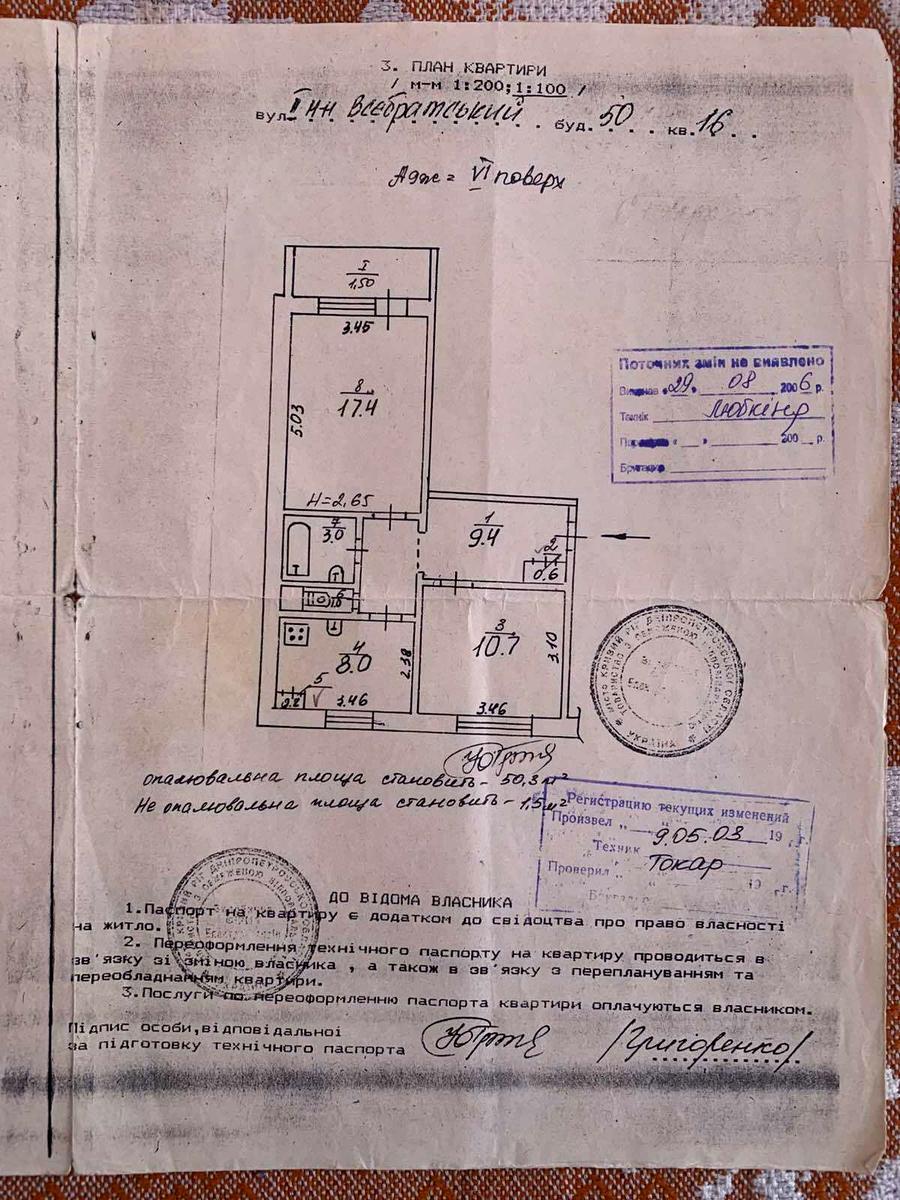 3. ПЛАН КВАРТИРИ
/ м-м 1:200;1:100 /
вул. буд. 50 кв. 16
VI поверх
I
1,50
3.45
8
17.4
5.03
Н=2,65
7
3.0
1
9.4
2
0.6
6
4
8.0
2.38
3
10.7
3.10
5
3.46
3.46
Поточних змін не виявлено
Виконав "29" 08 2006 р.
Технік
" " 200 р.
Бригадир
опалювальна площа становить - 50,3 м²
Не опалювальна площа становить - 1,5 м²
Регистрацию текущих изменений
Произвел " 9.05.03 19 г.
Техник Токар
Проверил " " 19 г.
МІСТО КРИВИЙ РІГ ДНІПРОПЕТРОВСЬКОЇ ОБЛАСТІ
УКРАЇНА
ДО ВІДОМА ВЛАСНИКА
1.Паспорт на квартиру є додатком до свідоцтва про право власності
на житло.
2. Переоформлення технічного паспорту на квартиру проводиться в
зв'язку зі зміною власника , а також в зв'язку з переплануванням та
переобладнанням квартири.
3.Послуги по переоформленню паспорта квартири оплачуються власником.
Підпис особи,відповідальної
за підготовку технічного паспорта /Григоренко/